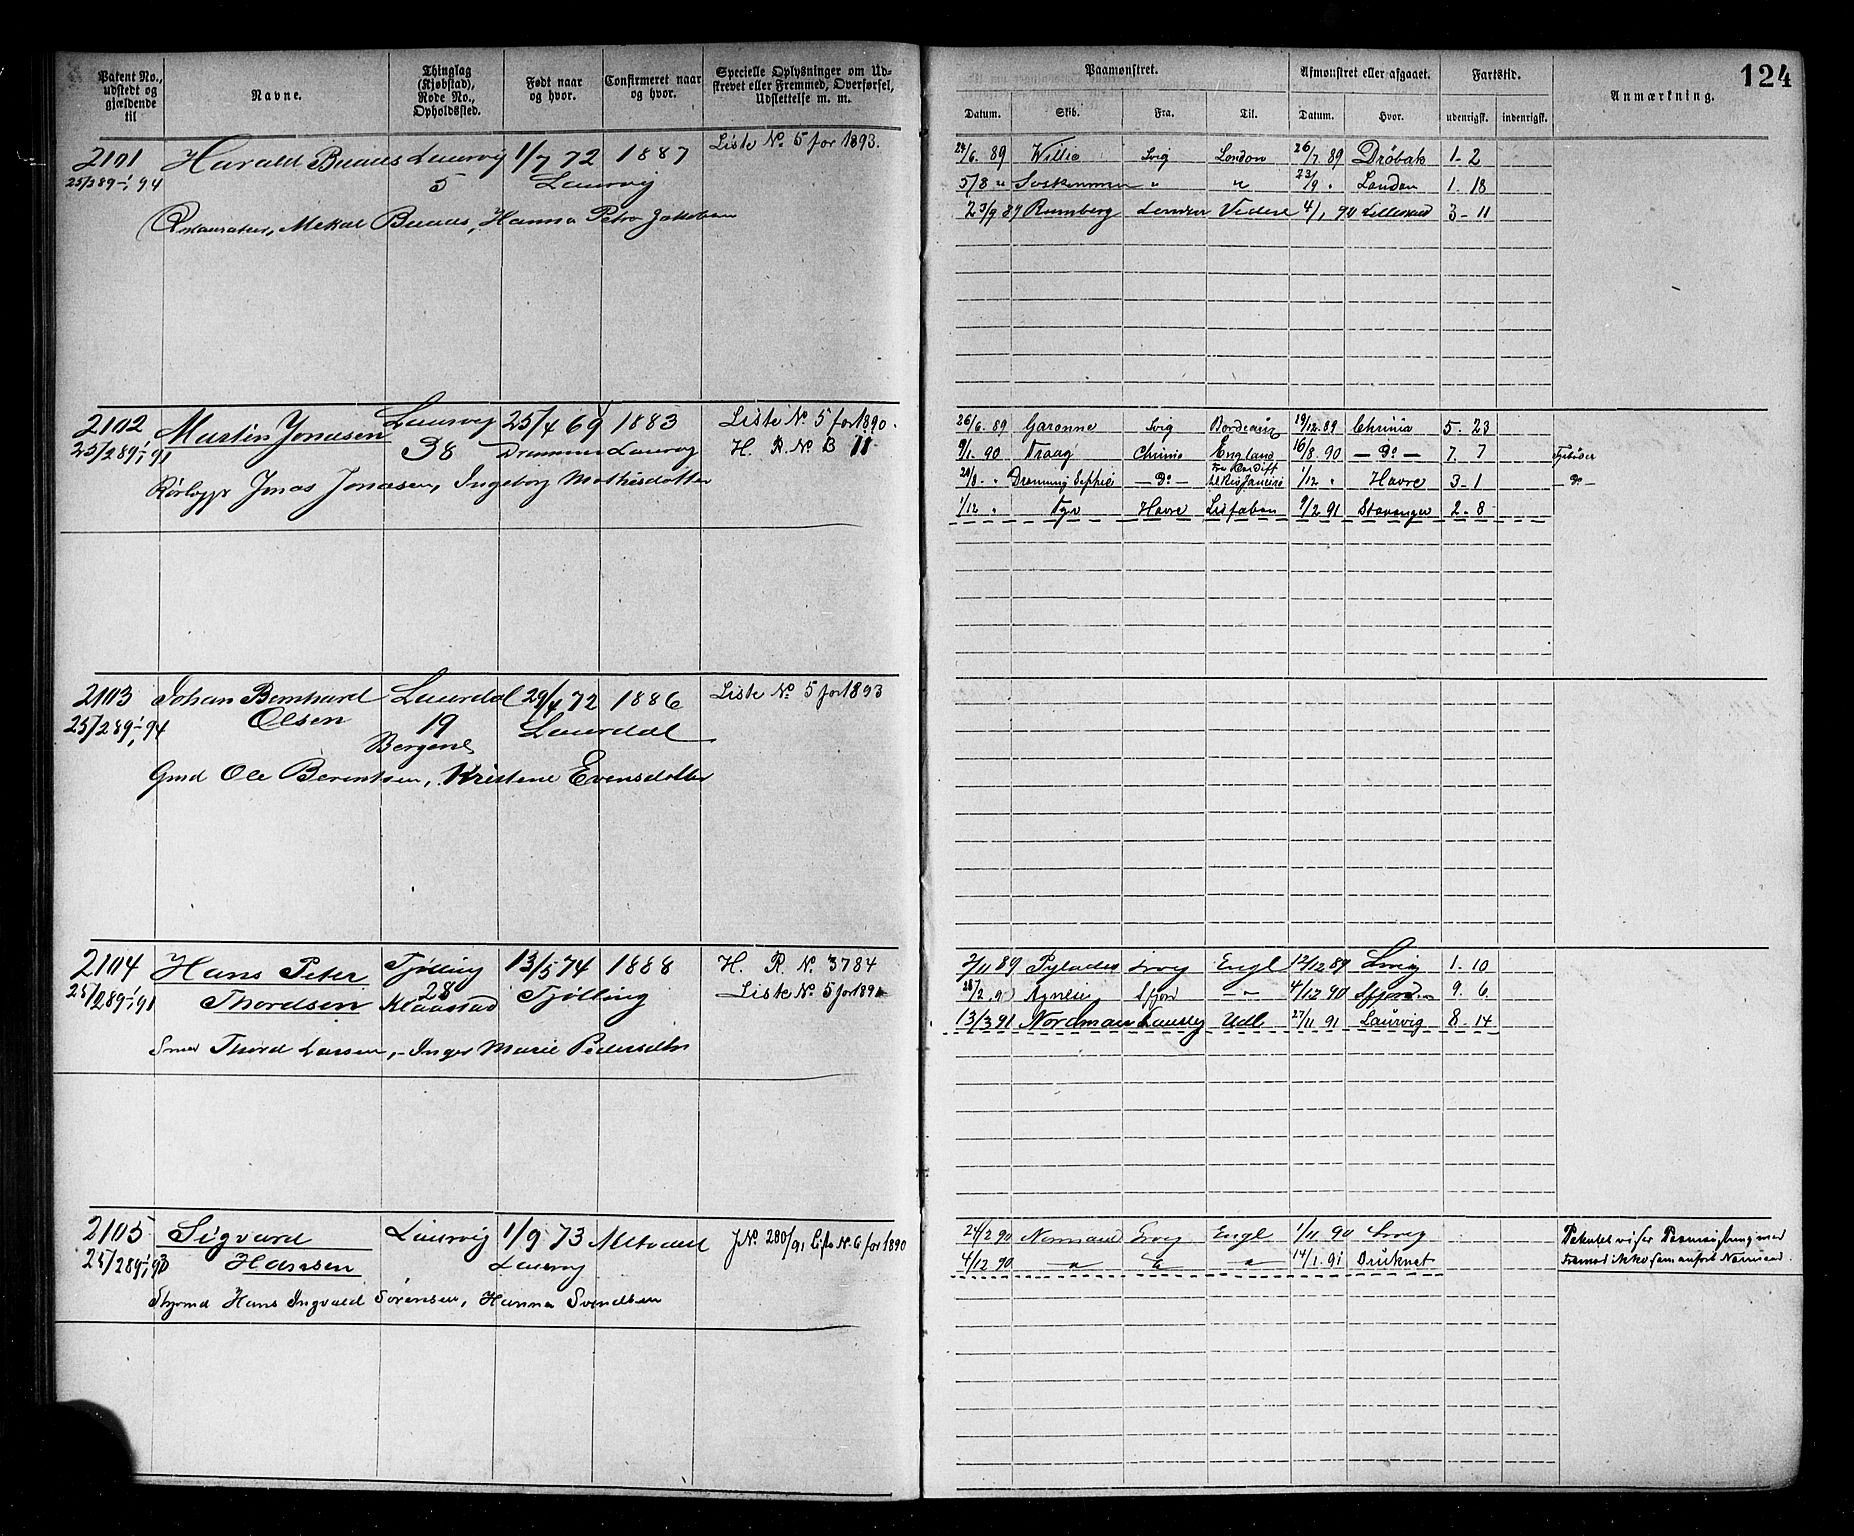 Patent No., udstedt og gjældende til
Navne.
Thinglag (Kjøbstad), Rode No., Opholdssted.
Født naar og hvor.
Confirmeret naar og hvor.
Specielle Oplysninger om Udskrevet eller Fremmed, Overførsel, Udslettelse m. m.
2101 Harald Laurvig 1/7 72 1887 Liste No 5 for 1893.
25/2 89-1/1 94 5 Laurvig
Hanna Petra Jakobsen
2102 Martin Jonasen Laurvig 25/4 69 1883 Liste No 5 for 1890.
25/2 89-1/1 91 38 Drammen Laurvig H. R. No B 11
Jonas Jonasen, Ingeborg Mathisdatter
2103 Johan Bernhard Laurdal 29/4 72 1886 Liste No 5 for 1893
25/2 89-1/1 94 Olsen 19 Laurdal
Bergene
Gmd Ole Berentsen, Kristene Evensdatter
2104 Hans Peter Tjølling 13/5 74 1888 H. R. No 3784
25/2 89-1/1 91 Thordsen 28 Klaastad Tjølling Liste No 5 for 1891
Smed Thord Larsen, Inger Marie Pedersdtr
2105 Sigvard Laurvig 1/9 73 J No 280/91 Liste No 6 for 1890
25/2 89-1/1 93 Hansen Laurvig
Hans Ingvald Sørensen, Hanna Svendsen
124
Paamønstret.
Afmønstret eller afgaaet.
Fartstid.
Anmærkning.
Datum. Skib. Fra. Til. Datum. Hvor. udenrigsk. indenrigsk.
24/6. 89 Willie Lvig London 26/7 89 Drøbak 1-2
5/8 " " " 23/9 " London 1. 18
23/9 89 Rumberg London 4/1 90 Lillesand 3-11
26/6. 89 Garonne Lvig Bordeaux 19/12 89 Chrinia 5. 23
9/1. 90 Traag Chrinia England 16/8. 90 — Do — 7. 7
28/8. " Dronning Sophie — Do — Fra Cardiff til Rio Janeiro 1/12 " Havre 3-1 Do
1/12 " Tyr Havre Lissabon 9/2 91 Stavanger 2-8
2/11 89 Pylades Lvig Engl 12/12 89 Lvig 1. 10
Sfjord 4/12 90 Sfjord 9. 6.
13/3 91 Nordman Udl 27/11 91 Laurvig 8-14
24/2 90 Norman Lvig Engl 1/11 90 Lvig
4/12 90 14/1. 91